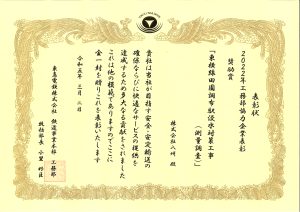 表彰状
2022年工務部協力企業表彰
奨励賞
「東横線田園調布駅浸水対策工事
(測量調査)」
株式会社八州 殿
貴社は当社が目指す安全・安定輸送の
確保ならびに快適なサービスの提供を
達成するため多大なる貢献をされました
これは他の模範でありますのでここに
金一封を贈りこれを表彰いたします
令和五年三月二日
東急電鉄株式会社 鉄道事業本部 工務部
統括部長